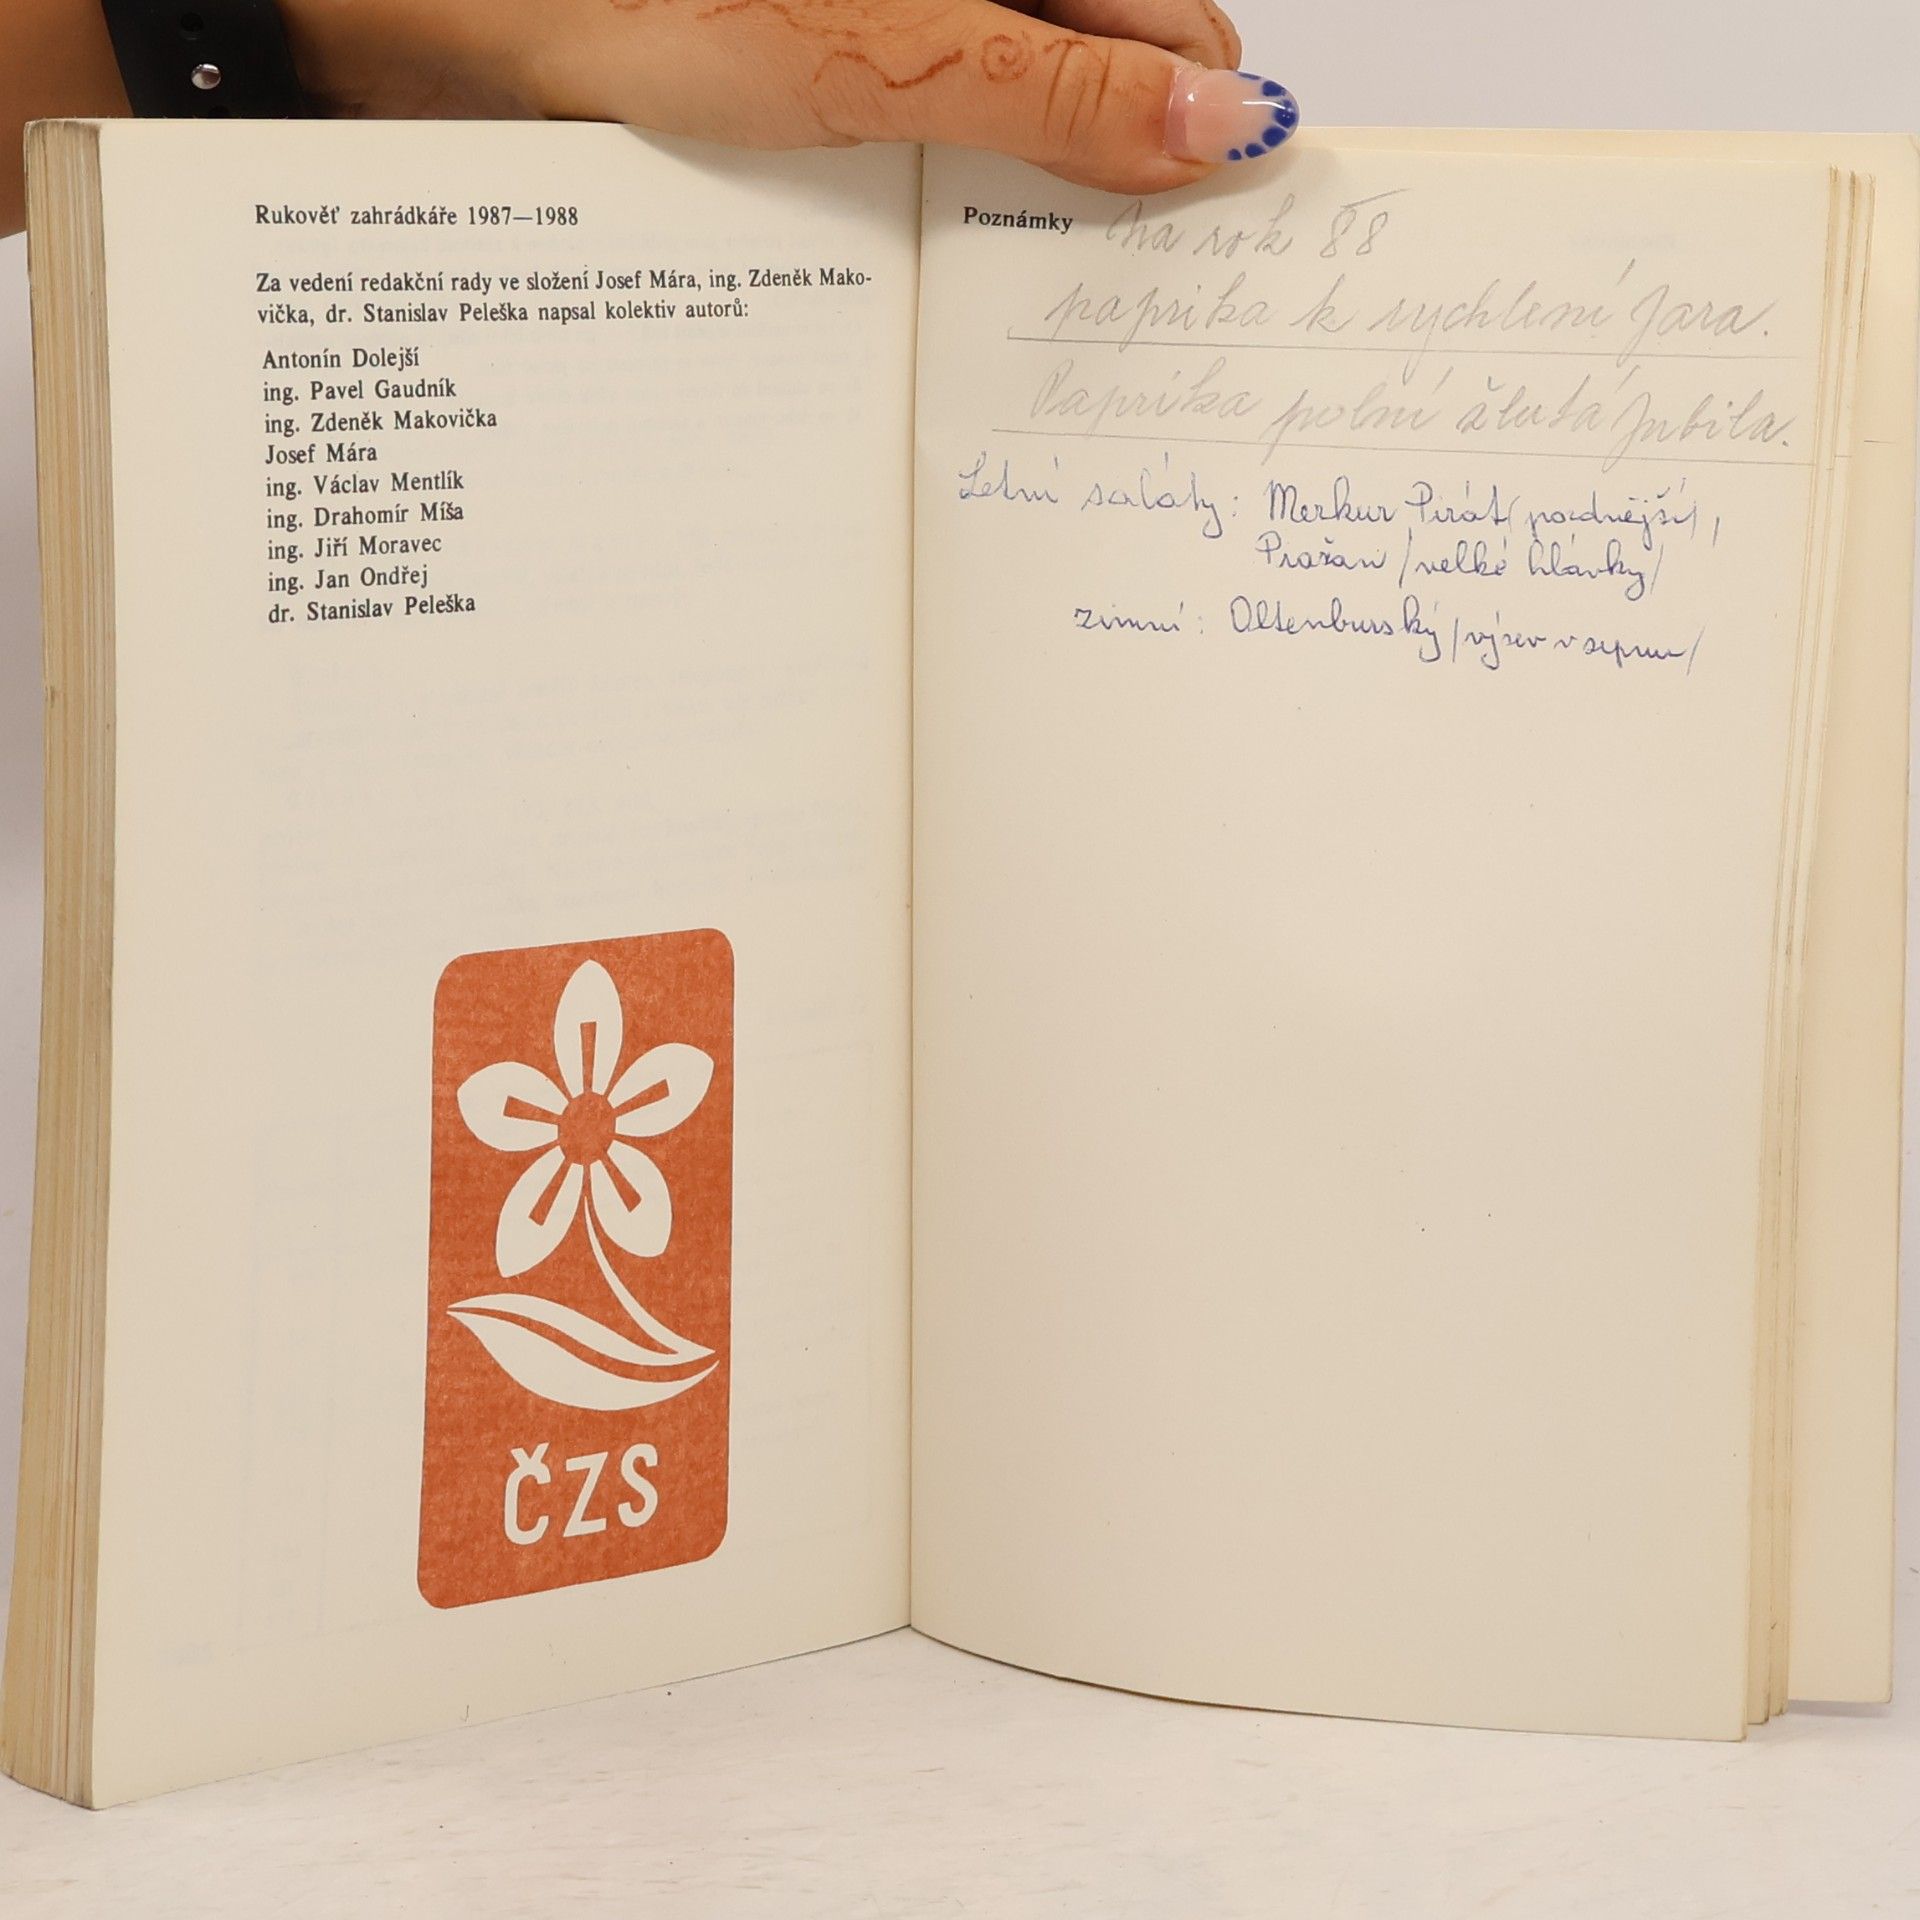 Rukověť zahrádkáře 1987—1988
Za vedení redakční rady ve složení Josef Mára, ing. Zdeněk Mako-
vička, dr. Stanislav Peleška napsal kolektiv autorů:
Antonín Dolejší
ing. Pavel Gaudník
ing. Zdeněk Makovička
Josef Mára
ing. Václav Mentlík
ing. Drahomír Míša
ing. Jiří Moravec
ing. Jan Ondřej
dr. Stanislav Peleška
ČZS
Poznámky na rok 88
paprika k rychlení Jara.
Paprika polní žlutá Jubila.
Letní saláty: Merkur Pirát (pozdnější),
Pražan /velké hlávky/
zimní: Altenburský /výsev v srpnu/